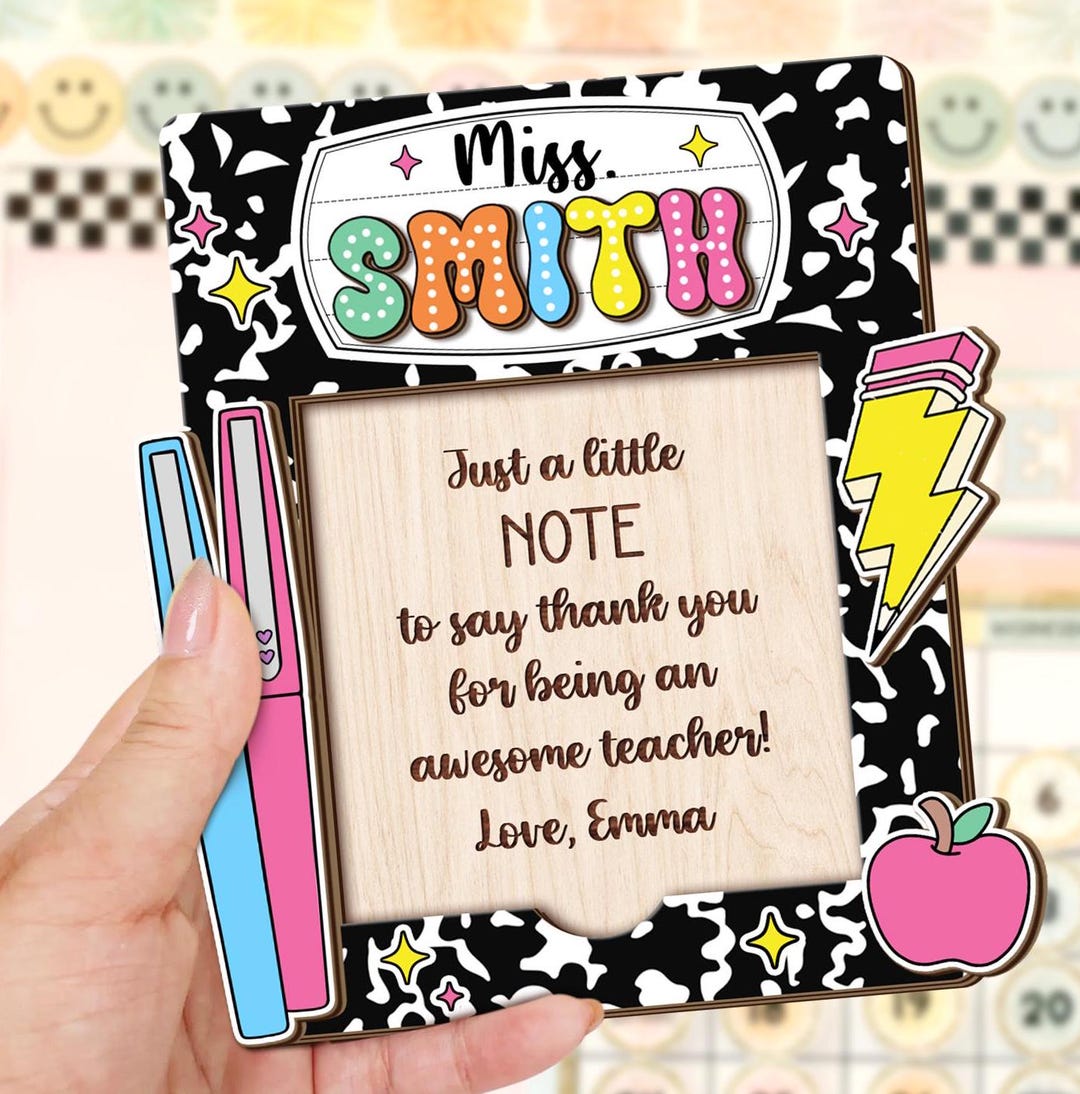 Miss.
SMITH
Just a little
NOTE
to say thank you
for being an
awesome teacher!
Love, Emma
6
18
19
20